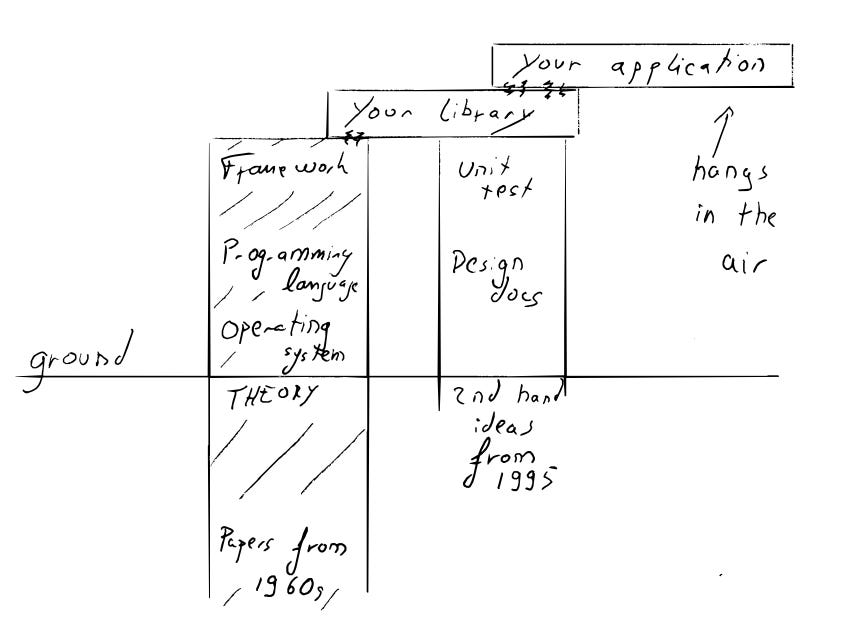 Your application
Your library
Framework
Programming
language
Operating
system
THEORY
Papers from
1960s
Unit
test
Design
docs
2nd hand
ideas
from
1995
hangs
in the
air
ground